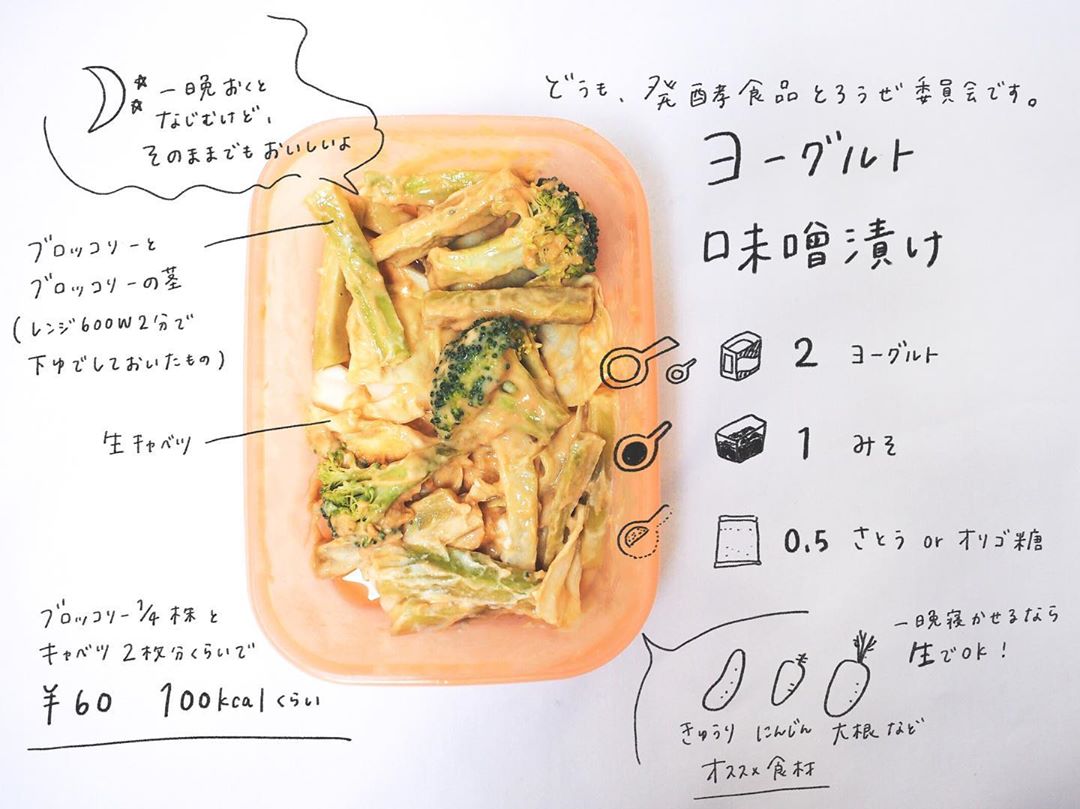 どうも、発酵食品とろうぜ委員会です。
ヨーグルト
味噌漬け
一晩おくと
なじむけど、
そのままでもおいしいよ
ブロッコリーと
ブロッコリーの茎
(レンジ600W2分で
下ゆでしておいたもの)
生キャベツ
2 ヨーグルト
1 みそ
0.5 さとう or オリゴ糖
ブロッコリー1/4株と
キャベツ2枚分くらいで
¥60 100kcalくらい
一晩寝かせるなら
生でOK!
きゅうり にんじん 大根など
オススメ食材